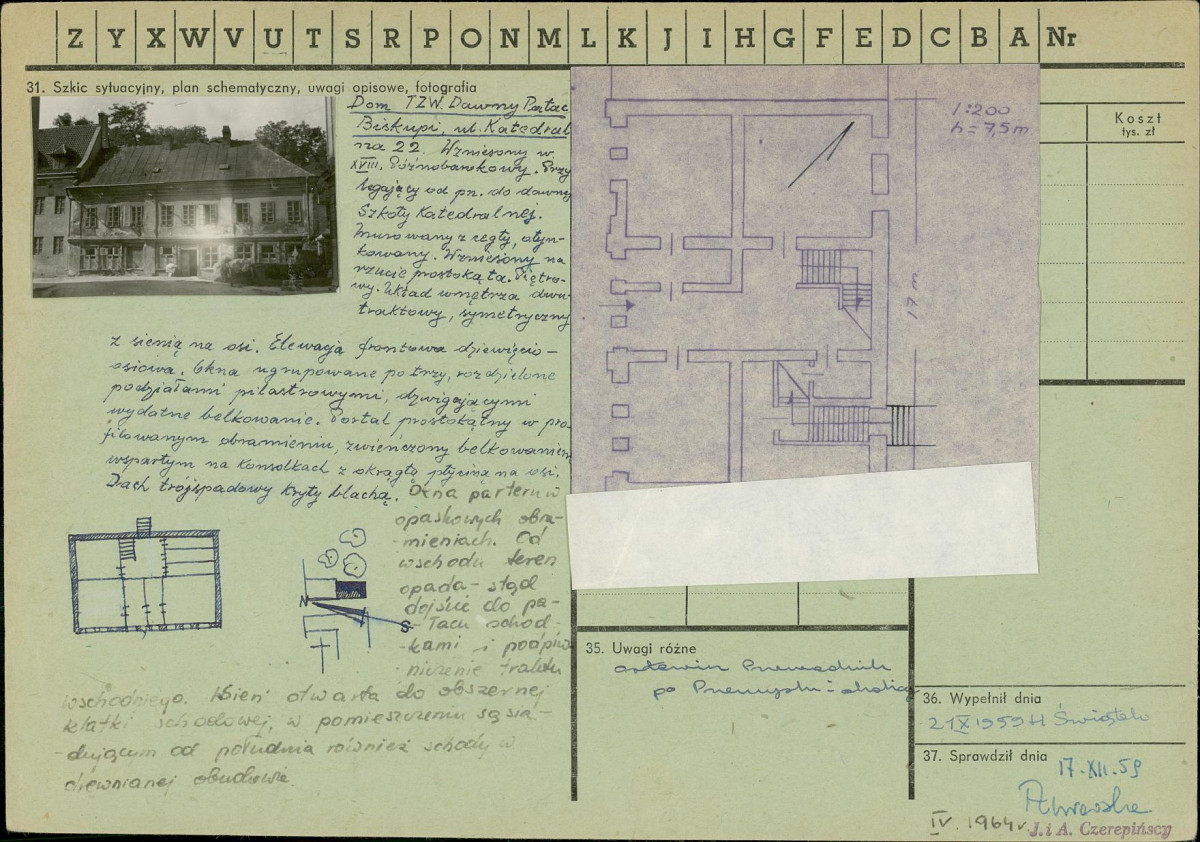 Z Y X W V U T S R P O N M L K J I H G F E D C B A Nr
31. Szkic sytuacyjny, plan schematyczny, uwagi opisowe, fotografia
Dom TZW. Dawny Pałac
Biskupi, ul. Katedral
na 22. Wzniesony w
XVIII. Późnobarokowy. Przy
legający od pn. do dawnej
Szkoły Katedralnej.
Murowany z cegły, otyn-
kowany. Wzniesony na
rzucie prostokąta. Piętro-
wy. Układ wnętrza dwu
traktowy, symetryczny
z sienią na osi. Elewacja frontowa dziewięcio-
osiowa. Okna ugrupowane po trzy, rozdzielone
podziałami pilastrowymi, dźwigającymi
wydatne belkowanie. Portal prostokątny w pro
filowanym obramieniu, zwieńczony belkowaniem
wspartym na konsolkach z okrągłą płyciną na osi.
Dach trójspadowy kryty blachą. Okna parteru w
opaskowych obra-
-mieniach. Od
wschodu teren
opada - stąd
dojście do pa-
-łacu schod-
-kami i podpiw
-niczenie traktu
wschodniego. Sień otwarta do obszernej
klatki schodowej, w pomieszczeniu są sia-
-dującym od południa również schody w
drewnianej obudowie.
N
S
1:200
h = 7,5 m
17 m
Koszt
tys. zł
35. Uwagi różne
Przewodnik
po Przemyślu i okolicy
36. Wypełnił dnia
21 X 1959 H Świątek
37. Sprawdził dnia
17.XII.59
IV. 1964 r. J. i A. Czerepińscy